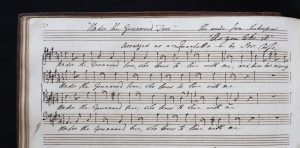 "Under the Greenwood Tree" The words from Shakespeare
"As you like it"
arranged as a Quartetto by
Under the Greenwood tree, who loves to lie with me, and tune his merry
Under the Greenwood tree, who loves to lie with me
Under the Greenwood tree, who loves to lie with me
Under the Greenwood tree, who loves to lie with me